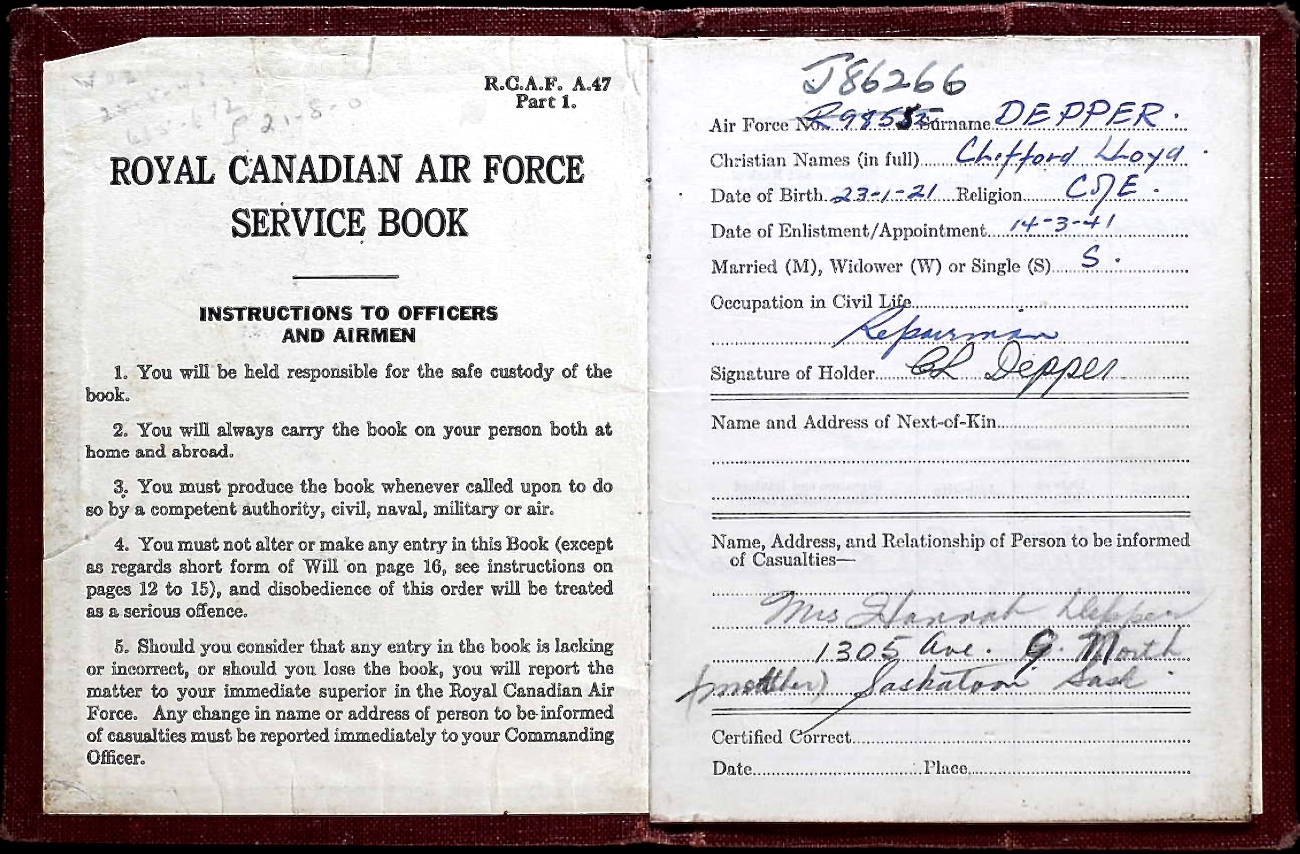 R.C.A.F. A.47
Part 1.
21-8-0
ROYAL CANADIAN AIR FORCE
SERVICE BOOK
INSTRUCTIONS TO OFFICERS
AND AIRMEN
1. You will be held responsible for the safe custody of the
book.
2. You will always carry the book on your person both at
home and abroad.
3. You must produce the book whenever called upon to do
so by a competent authority, civil, naval, military or air.
4. You must not alter or make any entry in this Book (except
as regards short form of Will on page 16, see instructions on
pages 12 to 15), and disobedience of this order will be treated
as a serious offence.
5. Should you consider that any entry in the book is lacking
or incorrect, or should you lose the book, you will report the
matter to your immediate superior in the Royal Canadian Air
Force. Any change in name or address of person to be informed
of casualties must be reported immediately to your Commanding
Officer.
J86266
Air Force No. Surname DEPPER.
Christian Names (in full) Clifford Lloyd.
Date of Birth 23-1-21 Religion C of E.
Date of Enlistment/Appointment 14-3-41
Married (M), Widower (W) or Single (S) S.
Occupation in Civil Life
Repairman
Signature of Holder CL Depper
Name and Address of Next-of-Kin
Name, Address, and Relationship of Person to be informed
of Casualties—
Mrs Hannah Depper
1305 Ave. G. North
(mother) Saskatoon Sask.
Certified Correct
Date Place